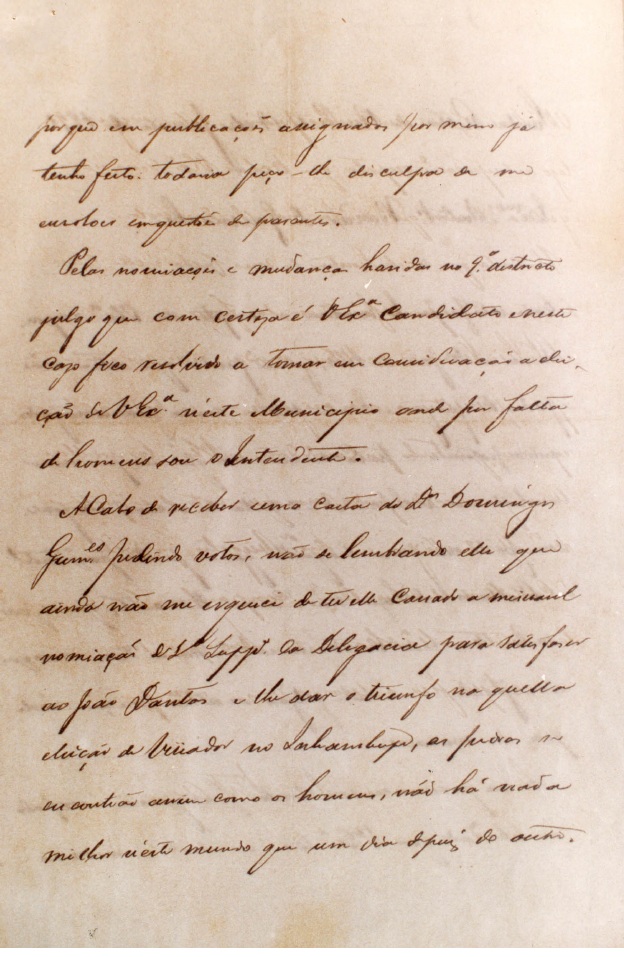 porque em publicações asignados por mim já
tenho feito. todavia peço-lhe disculpa de me
envolver em questõe de parentes.
Pelas nomiações e mudança havidas no 9.º districto
julgo que com certeza é V Ex.ª Candidato e neste
cazo fico resolvido a tomar em consideração a elei-
ção de V Ex.ª n'éste Municipio onde por falta
de homens sou o Intendente.
A Cabo de receber uma carta do Dr Domingos
Guim.es pedindo votos, não se lembrando elle que
ainda não me esqueci de ter elle Cassado a minha
nomiação de 1º Supp.e da Delegacia para satisfaser
ao João Dantas e lhe dar o triunfo na quella
eleição de Veriador no Inhambupe, as pedras se
encontrão assim como os homens, não há nada
milhor n'éste mundo que um dia depois do outro.